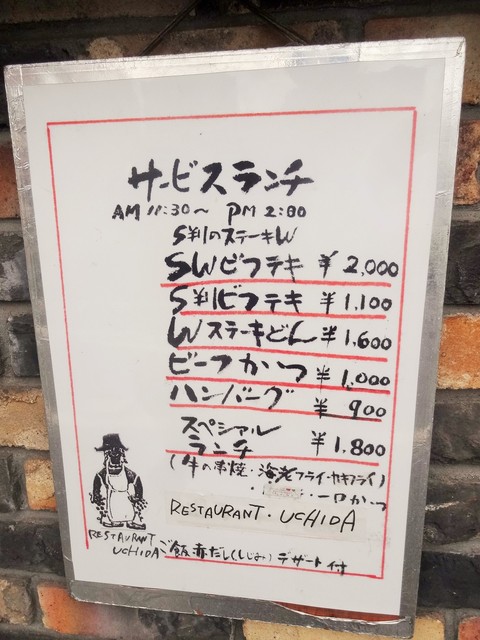 サービスランチ
AM 11:30〜 PM 2:00
S判のステーキW
SWビフテキ ¥2,000
S判ビフテキ ¥1,100
Wステーキどん ¥1,600
ビーフかつ ¥1,000
ハンバーグ ¥900
スペシャル
ランチ ¥1,800
(牛の串焼・海老フライ・カキフライ)
・一口かつ
RESTAURANT・UCHIDA
RESTAURANT
UCHIDA
ご飯赤だし(しじみ)デザート付